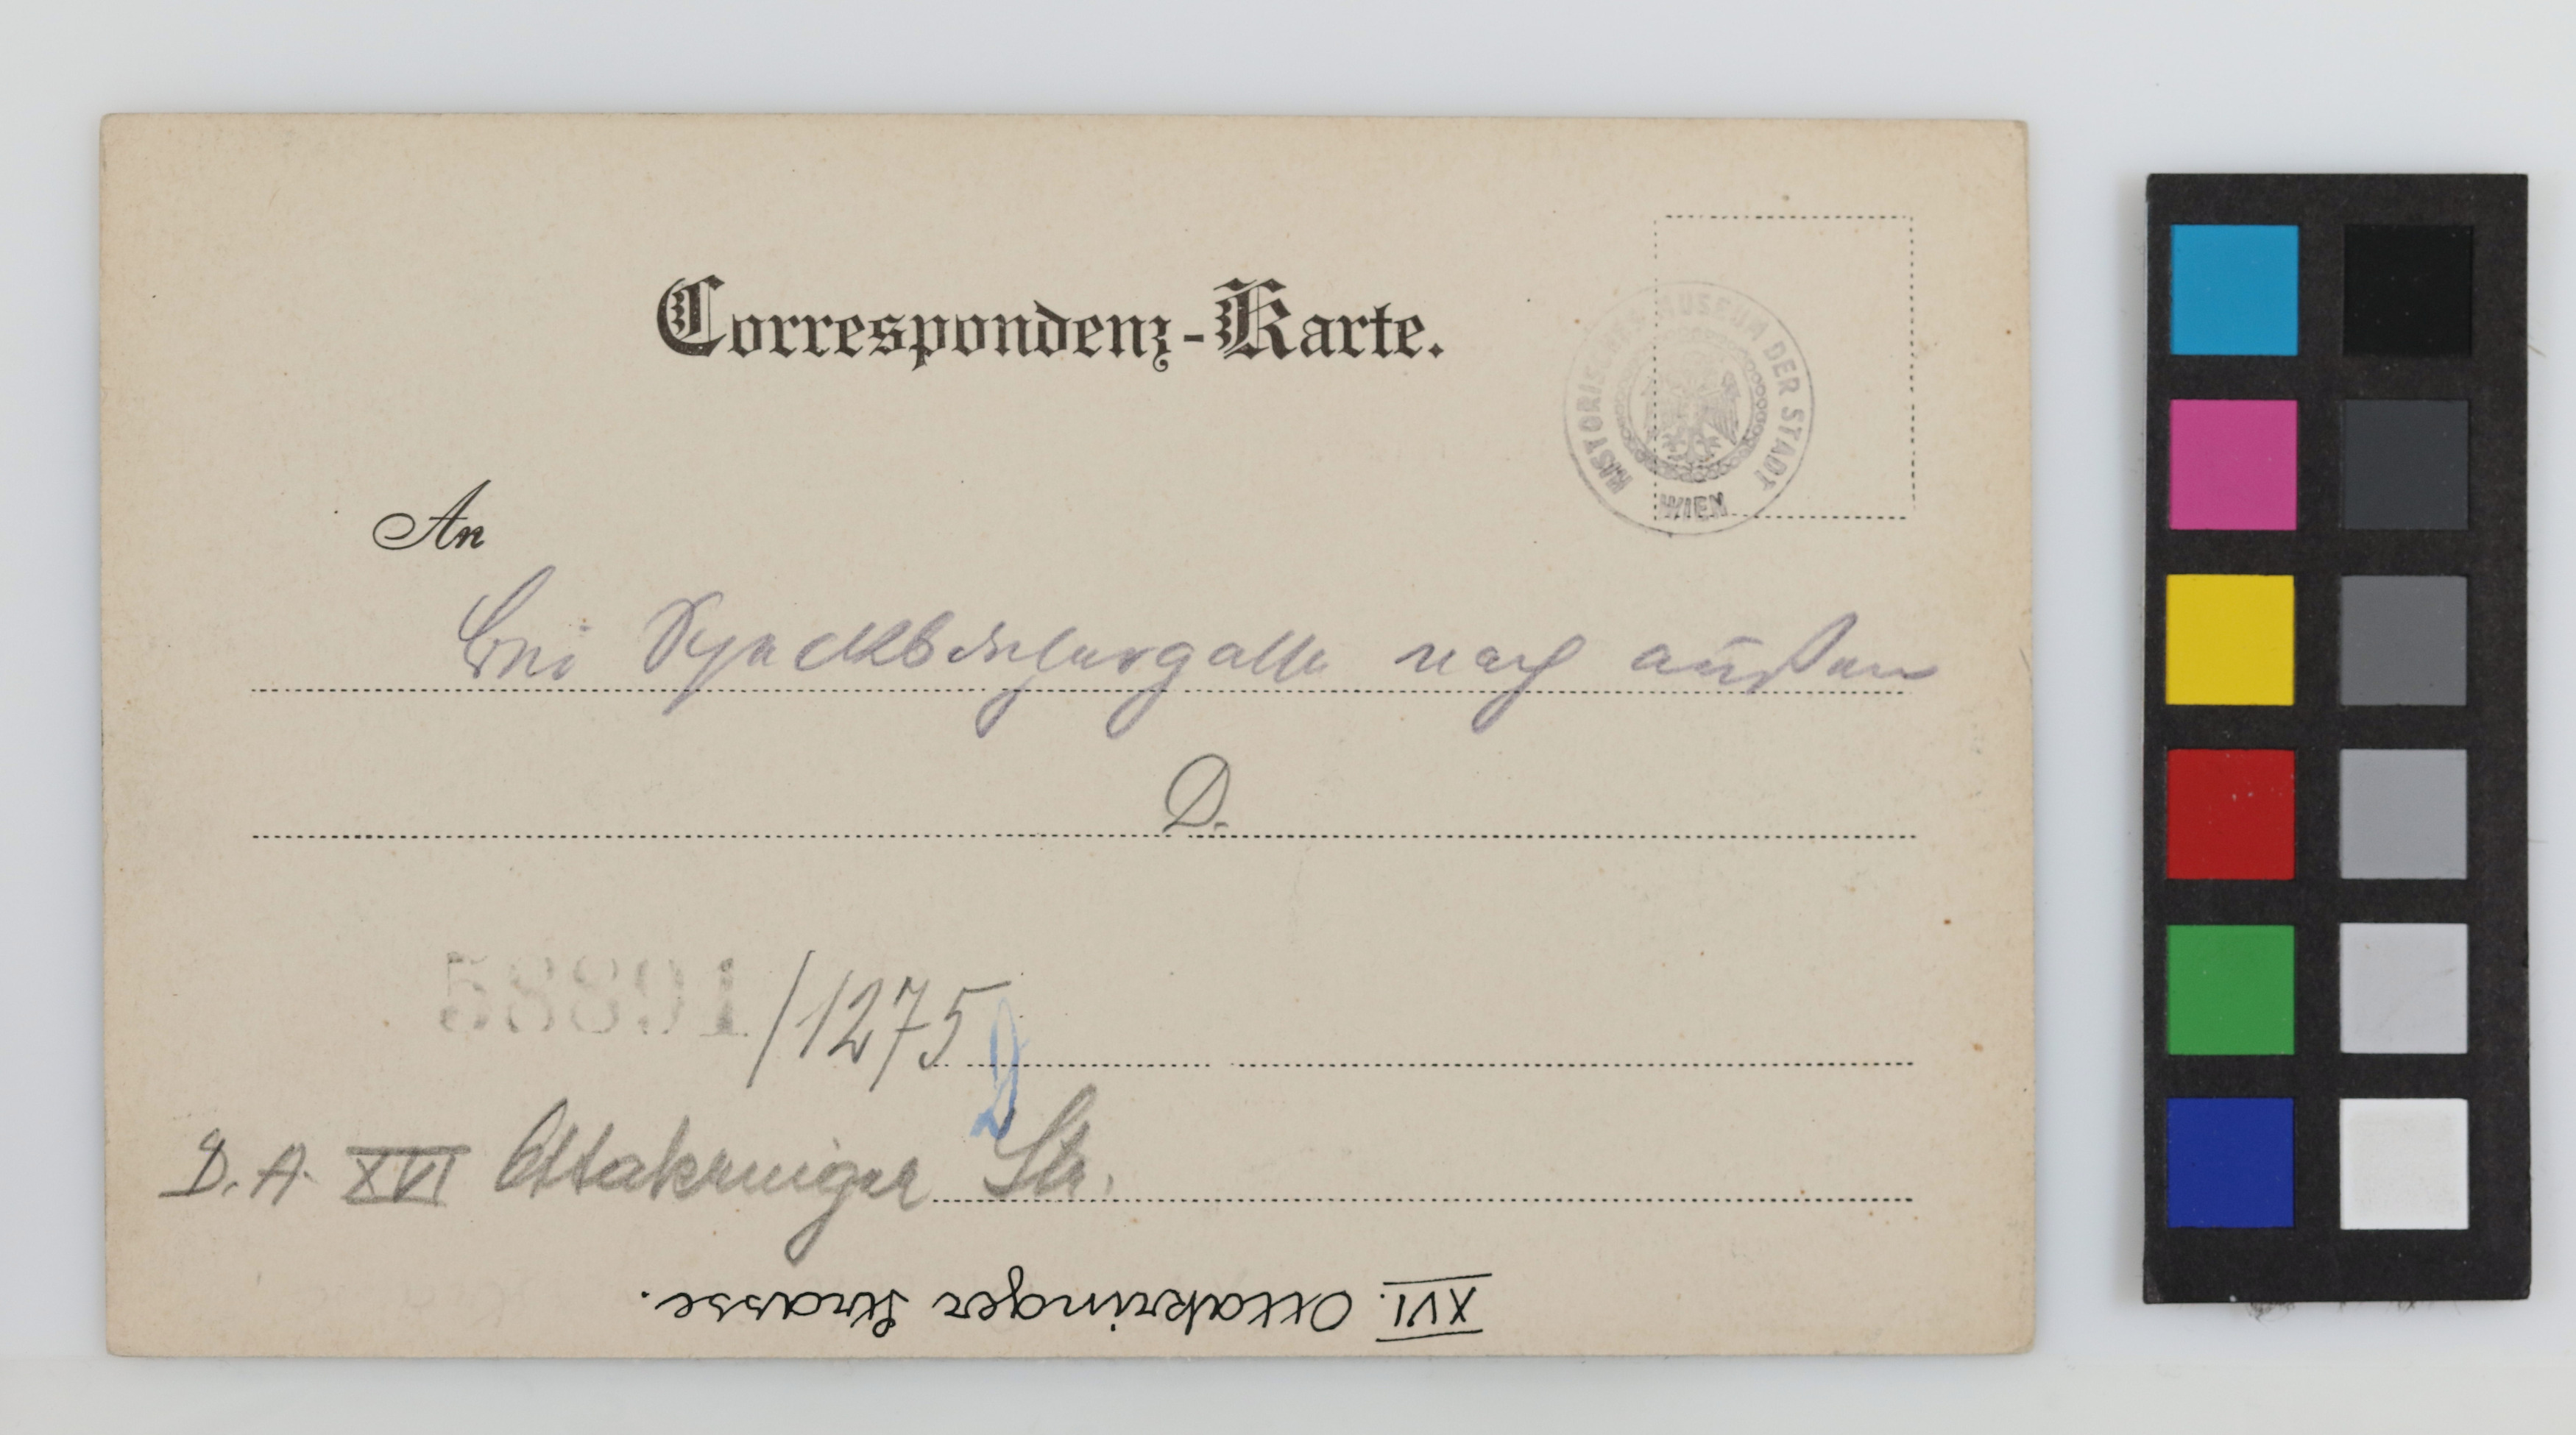 Correspondenz-Karte.
HISTORISCHES MUSEUM DER STADT WIEN
An
bei Speckbachergasse nach außen
D.
58891/1275
D.A. XVI Ottakringer Str.
XVI. Ottakringer Strasse.